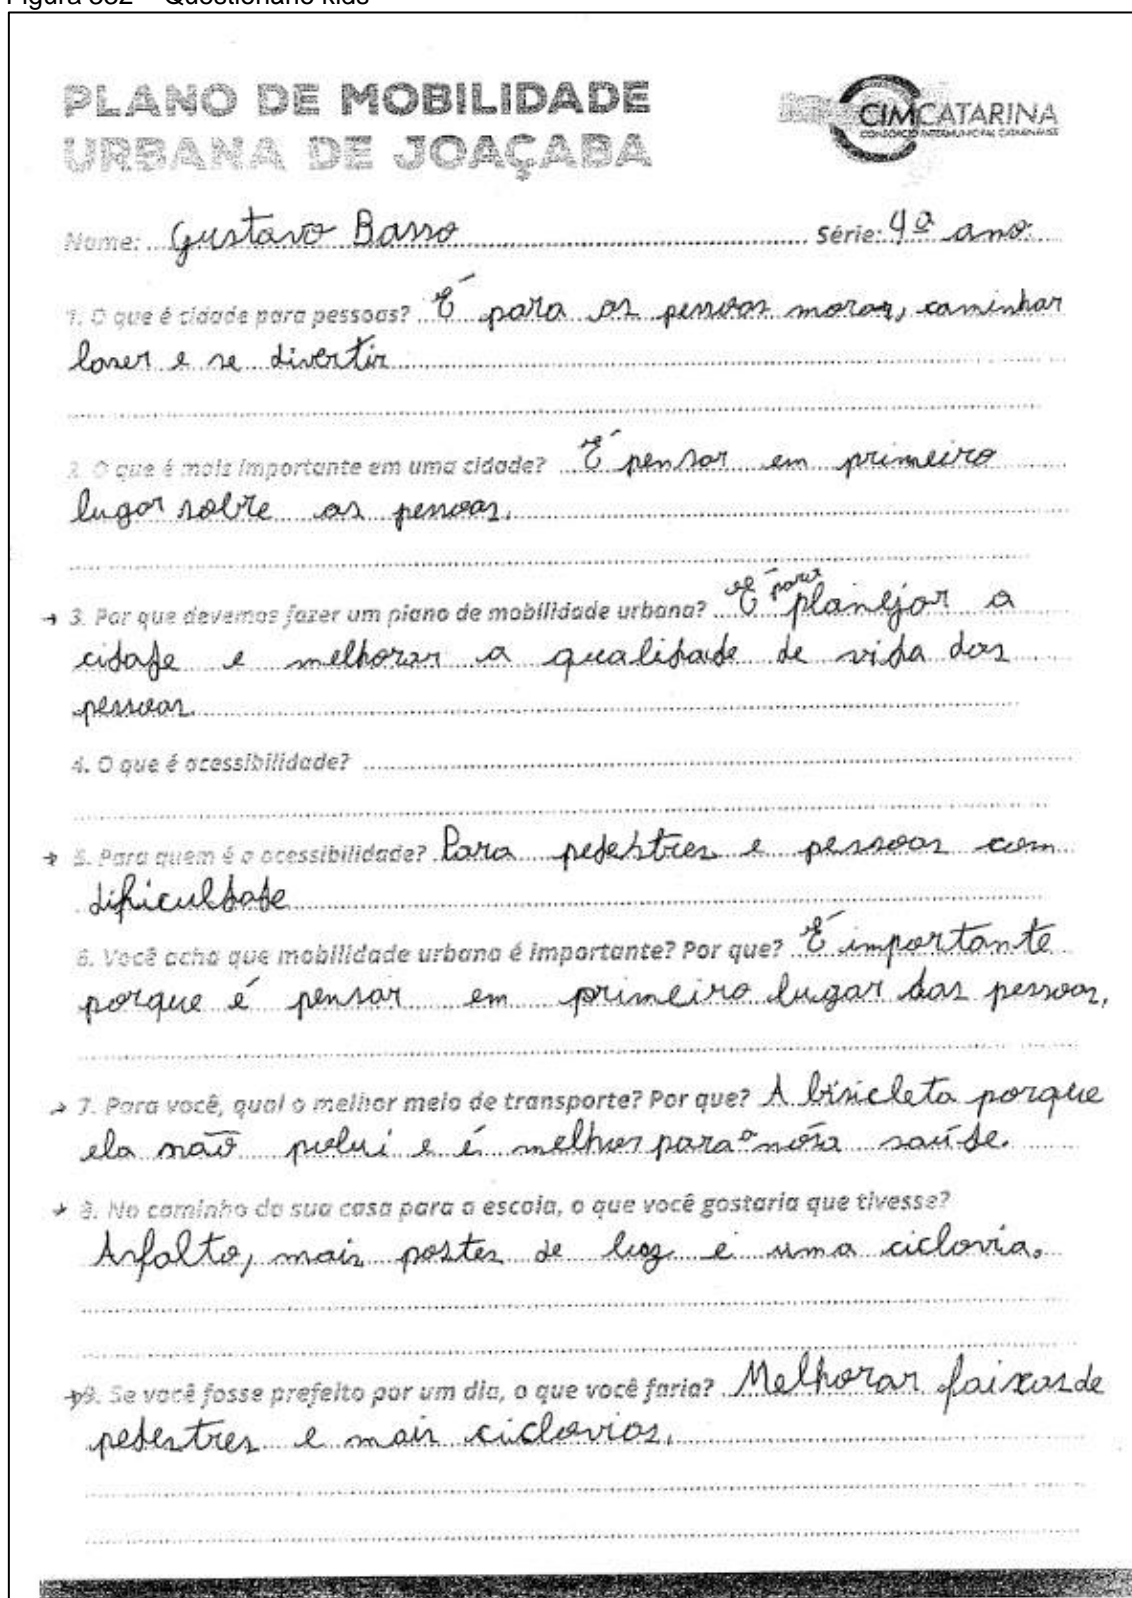 Questionário kids
PLANO DE MOBILIDADE
URBANA DE JOAÇABA
CIMCATARINA
CONSÓRCIO INTERMUNICIPAL CATARINENSE
Nome: Gustavo Basso Série: 4º ano
1. O que é cidade para pessoas? É para as pessoas morar, caminhar
laser e se divertir
2. O que é mais importante em uma cidade? É pensar em primeiro
lugar sobre as pessoas.
→ 3. Por que devemos fazer um plano de mobilidade urbana? É para planejar a
cidade e melhorar a qualidade de vida das
pessoas
4. O que é acessibilidade?
→ 5. Para quem é a acessibilidade? Para pedestres e pessoas com
dificuldade
6. Você acha que mobilidade urbana é importante? Por que? É importante
porque é pensar em primeiro lugar das pessoas,
→ 7. Para você, qual o melhor meio de transporte? Por que? A bisicleta porque
ela não polui e é melhor para a nósa saúde.
→ 8. No caminho da sua casa para a escola, o que você gostaria que tivesse?
Asfalto, mais postes de luz e uma ciclovia.
→ 9. Se você fosse prefeito por um dia, o que você faria? Melhorar faixas de
pedestres e mais ciclovias.